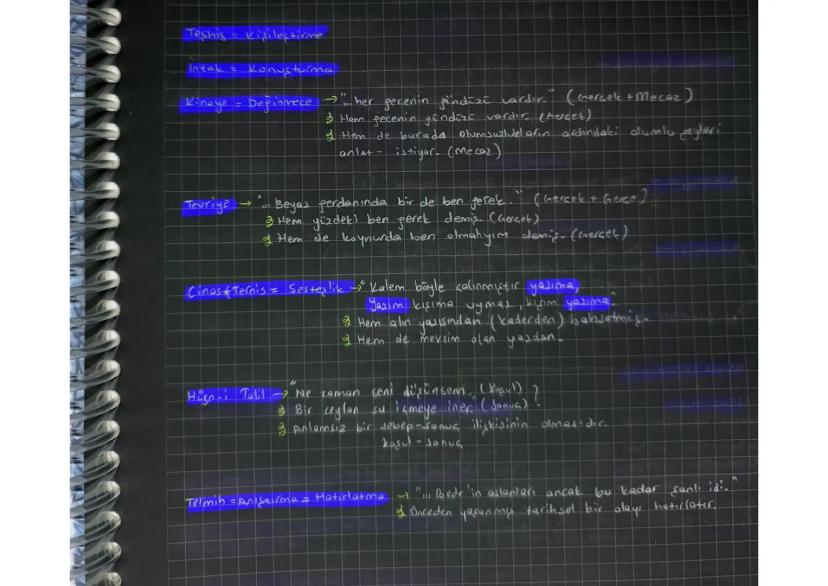 Teşhis = Kişileştirme
İntak = Konuşturma
Kinaye = Değinmece → "...her gecenin gündüzü vardır." (Gerçek + Mecaz)
Hem gecenin gündüzü vardır. (Gerçek)
Hem de burada olumsuzlukların ardındaki olumlu şeyleri
anlat- istiyor. (Mecaz)
Tevriye → "... Beyaz gerdanında bir de ben gerek." (Gerçek + Gerçe)
Hem yüzdeki ben gerek demiş. (Gerçek)
Hem de koynunda ben olmalıyım demiş. (Gerçek)
Cinas = Sesteşlik → "Kalem böyle çalınmıştır yazıma,
Yazım kışıma uymaz, kışım yazıma."
Hem alın yazısından (kaderden) bahsetmiş.
Hem de mevsim olan yazdan.
Hüsn-i Talil → "Ne zaman seni düşünsem, (koşul)
Bir ceylan su içmeye iner." (sonuç)
Anlamsız bir sebep-sonuç ilişkisinin olmasıdır.
koşul-sonuç
Telmih = Anıştırma = Hatırlatma → "... Bedr'in aslanları ancak bu kadar şanlı idi."
Önceden yaşanmış tarihsel bir olayı hatırlatır.